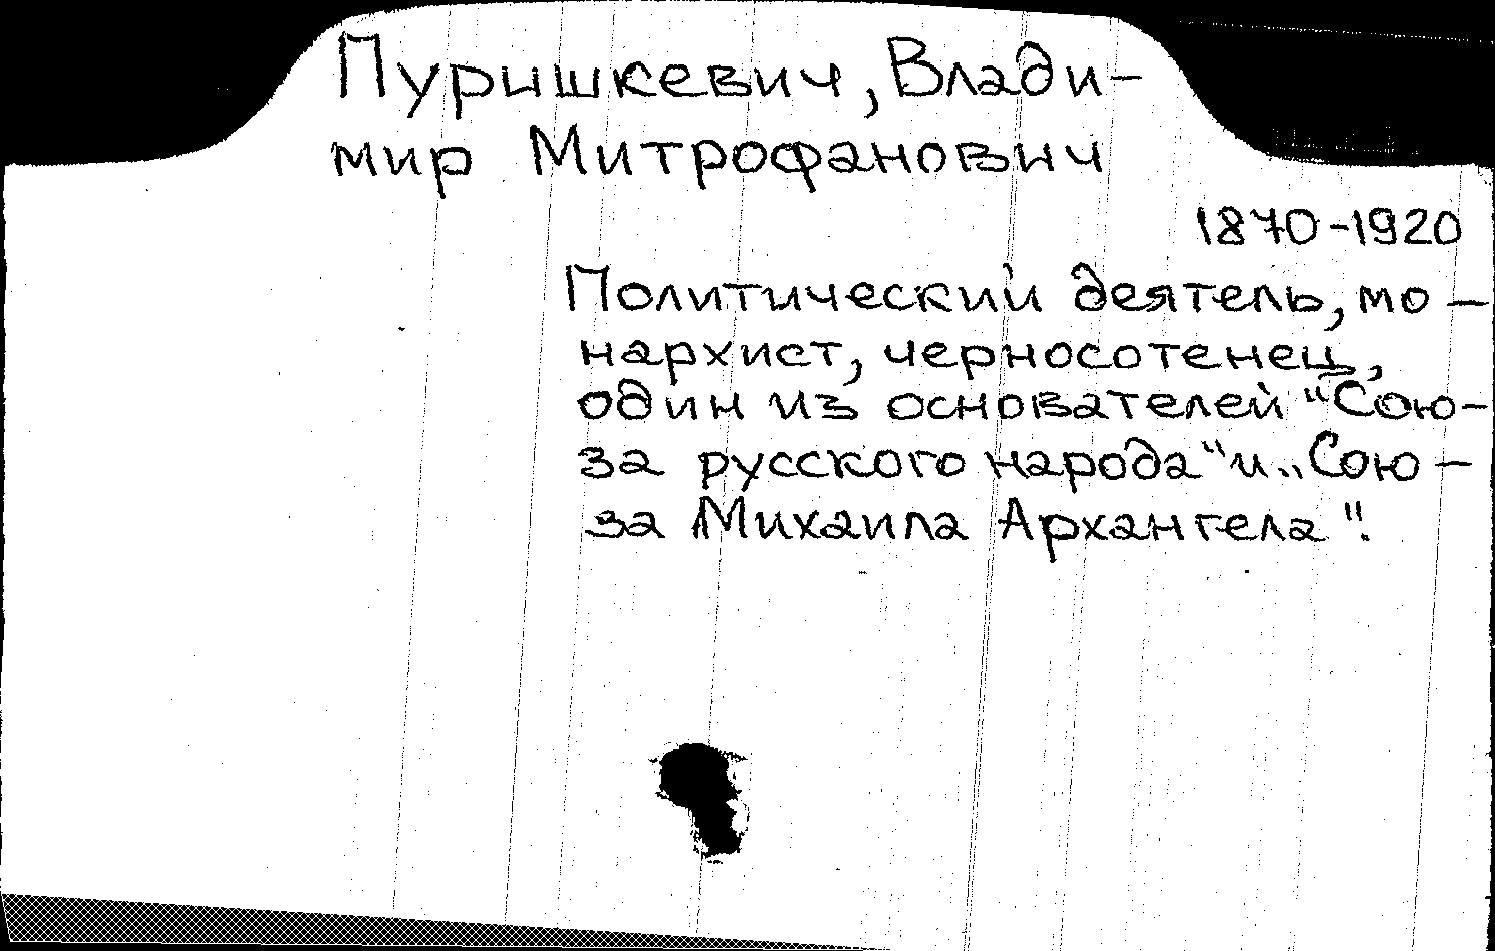 Пуришкевич, Влади-
мир Митрофанович
1870-1920
Политический деятель, мо-
нархист, черносотенец,
один из основателей "Сою-
за русского народа" и "Сою-
за Михаила Архангела".